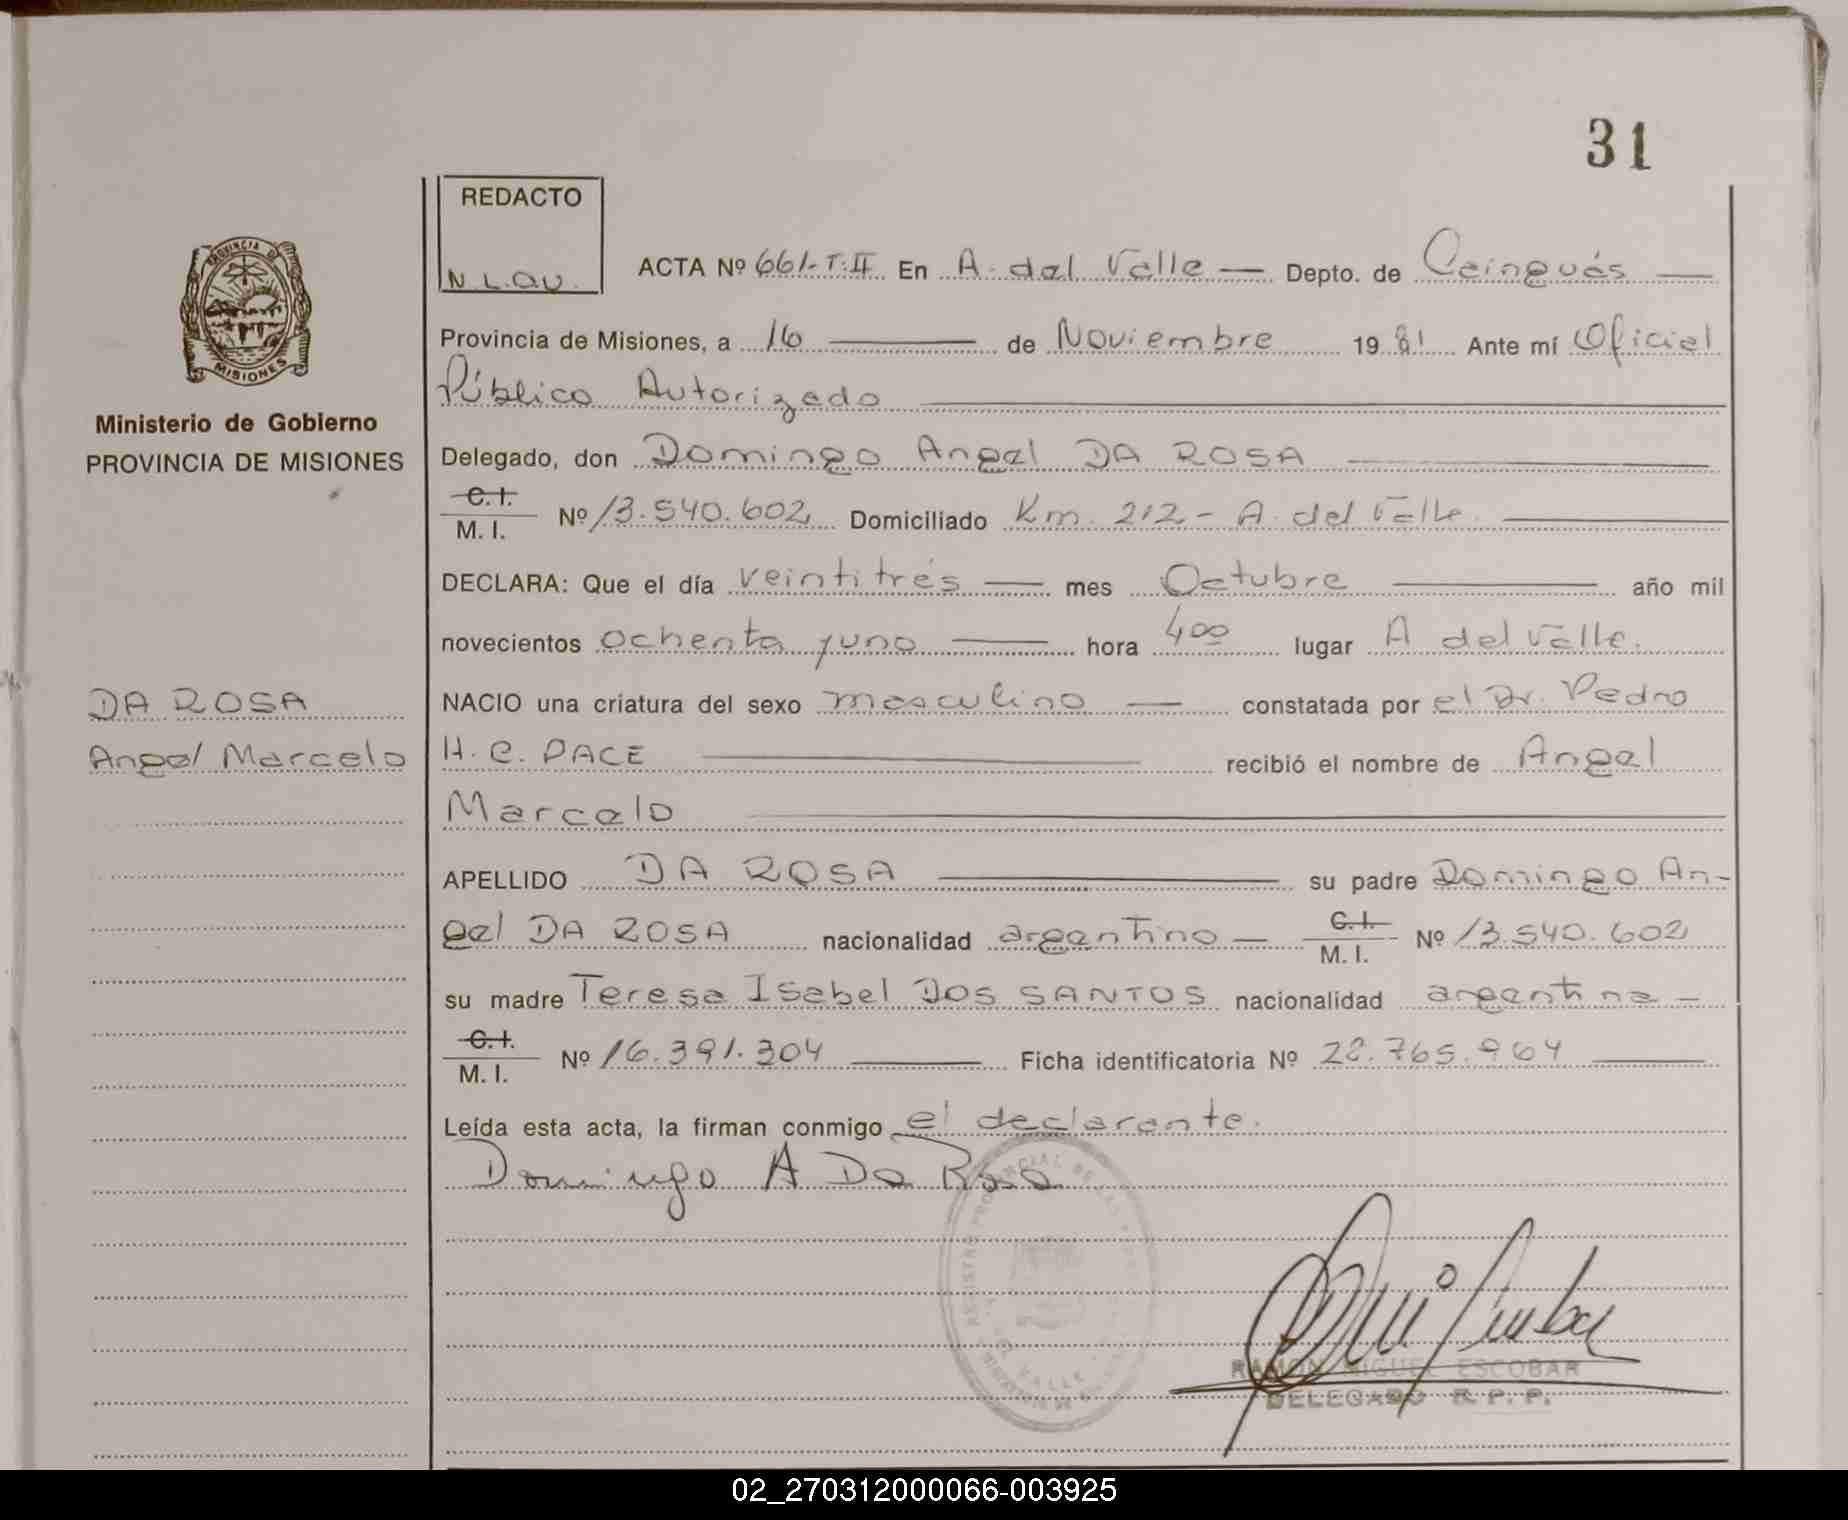 31
REDACTO
N.L.QU.
ACTA Nº 661-T.II En A. del Valle — Depto. de Cainguás —
PROVINCIA DE
MISIONES
Provincia de Misiones, a 16 — de Noviembre 1981 Ante mí Oficial
Público Autorizado
Ministerio de Gobierno
PROVINCIA DE MISIONES
Delegado, don Domingo Angel DA ROSA
C.I.
M. I. Nº 13.540.602 Domiciliado Km. 212 - A. del Valle.
DECLARA: Que el día veintitrés — mes Octubre — año mil
novecientos ochenta y uno — hora 400 lugar A del Valle.
DA ROSA
Angel Marcelo
NACIO una criatura del sexo masculino — constatada por el Dr. Pedro
H. C. PACE — recibió el nombre de Angel
Marcelo
APELLIDO DA ROSA — su padre Domingo An-
gel DA ROSA nacionalidad argentino — C.I. M. I. Nº 13.540.602
su madre Teresa Isabel DOS SANTOS nacionalidad argentina —
C.I.
M. I. Nº 16.391.304 — Ficha identificatoria Nº 28.765.964 —
Leída esta acta, la firman conmigo el declarante.
Domingo A Da Rosa
REGISTRO PROVINCIAL DE LAS
VALLE
RAMON MIGUEL ESCOBAR
DELEGADO R. P. P.
02_270312000066-003925